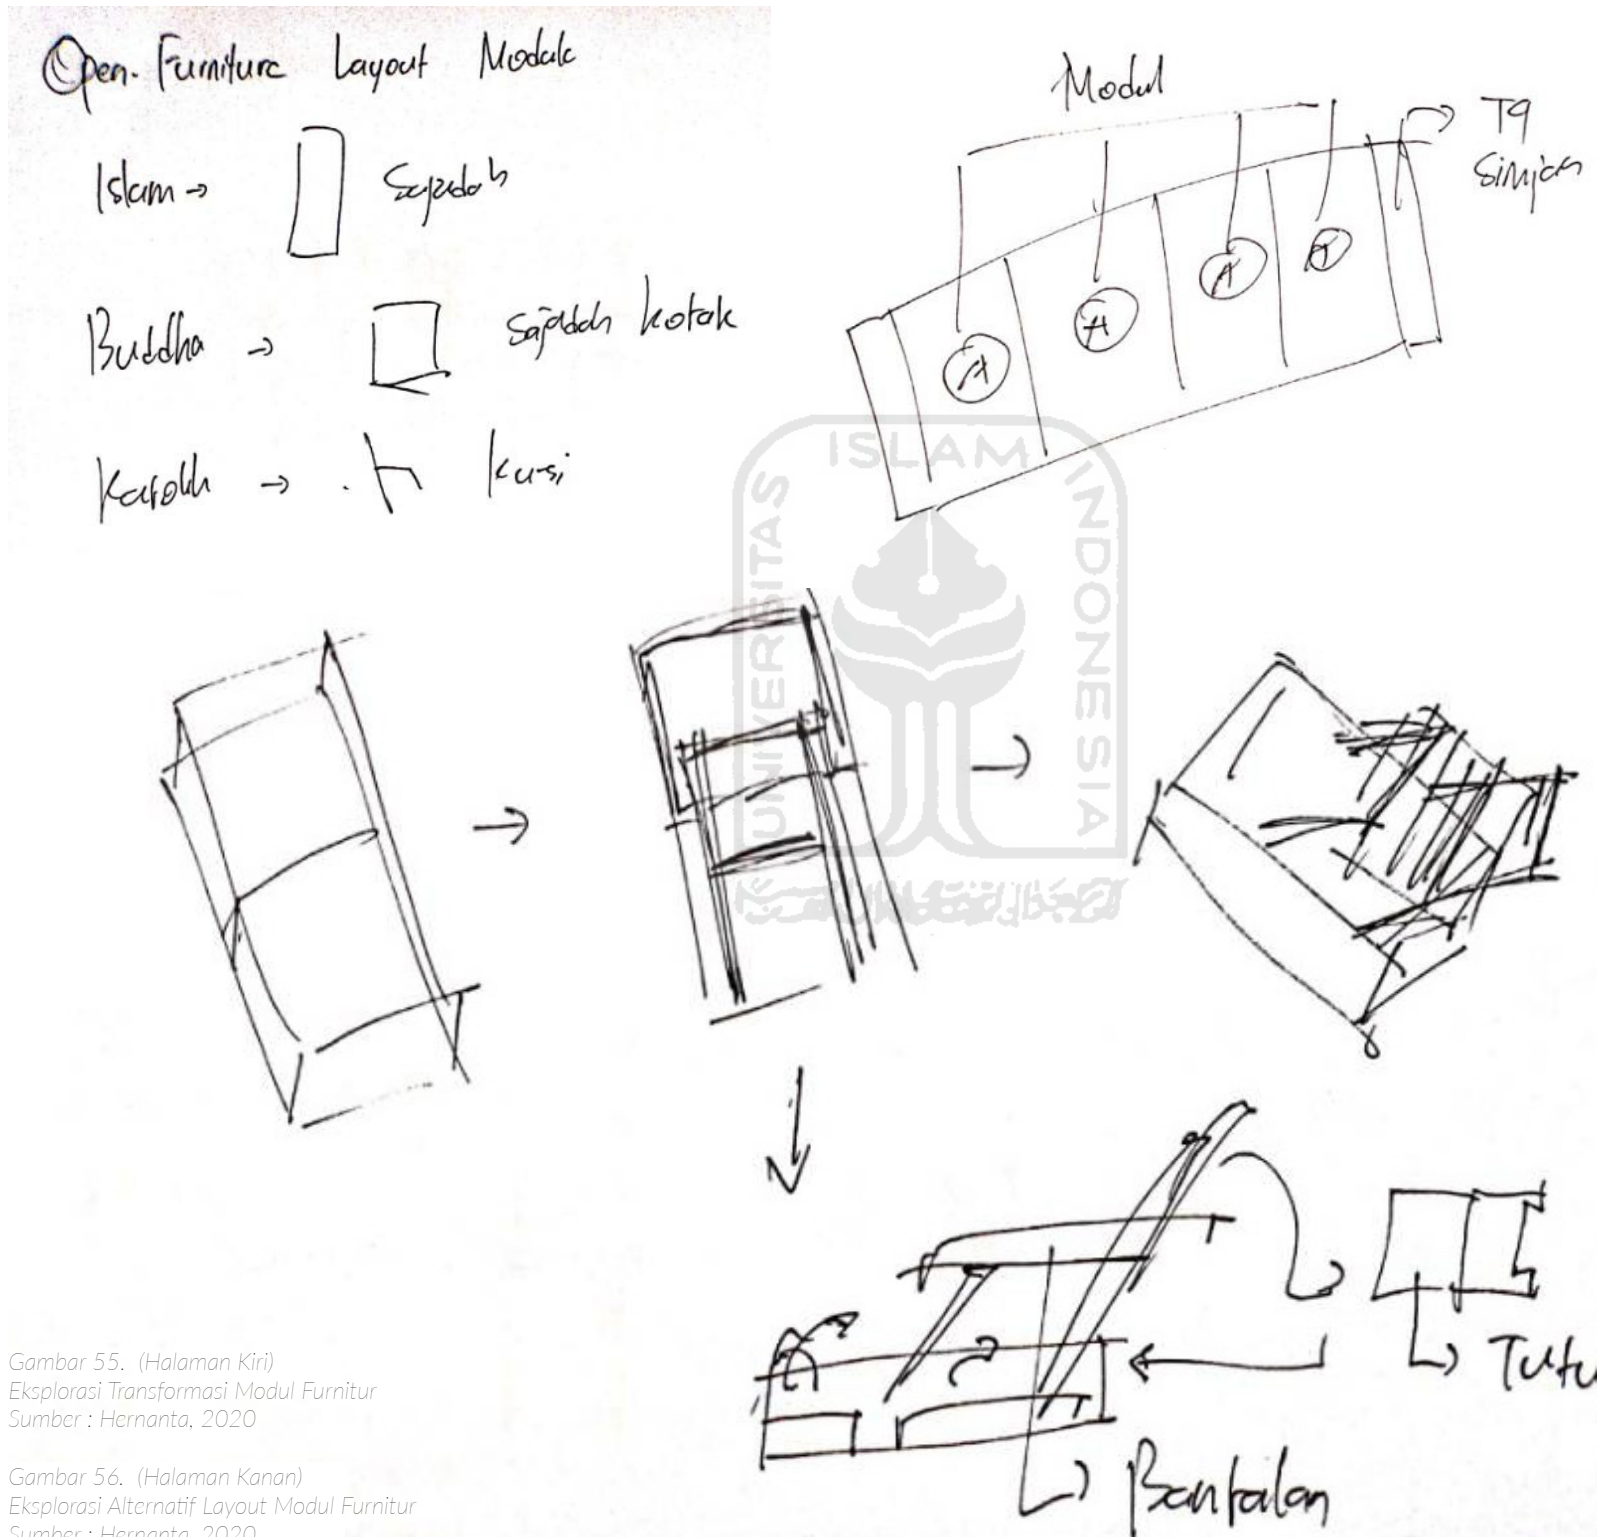 Open. Furniture Layout Module
Islam → Sajadah
Buddha → Sajadah kotak
Katolik → Kursi
Modul
Simpan
A
A
A
A
UNIVERSITAS ISLAM INDONESIA
Tutu
Bantalan
Gambar 55. (Halaman Kiri)
Eksplorasi Transformasi Modul Furnitur
Sumber : Hernanta, 2020
Gambar 56. (Halaman Kanan)
Eksplorasi Alternatif Layout Modul Furnitur
Sumber : Hernanta, 2020